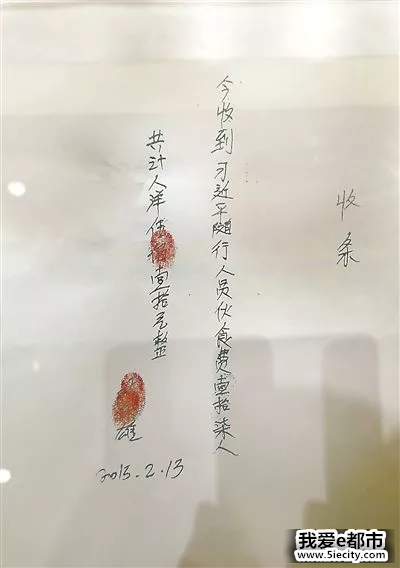 收条
今收到习近平随行人员伙食费壹拾柒人
共计人洋伍佰壹拾元整
雄
2013.2.13
我爱e都市
www.5iecity.com